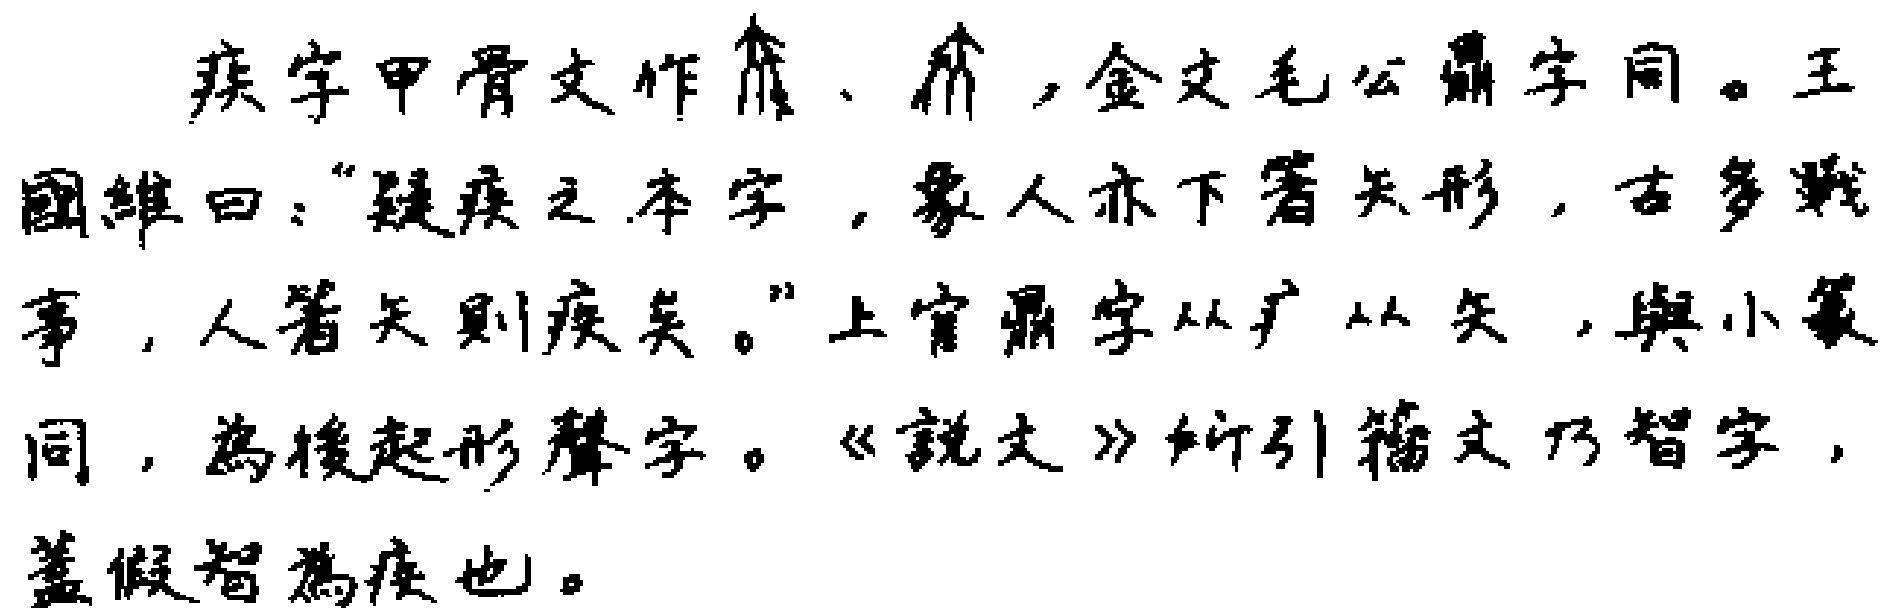 疾字甲骨文作、,金文毛公鼎字同。王
國維曰:“疑疾之本字,象人亦下著矢形,古多戰
事,人著矢則疾矣。”上官鼎字从疒从矢,與小篆
同,為後起形聲字。《説文》所引籀文乃智字,
蓋假智為疾也。